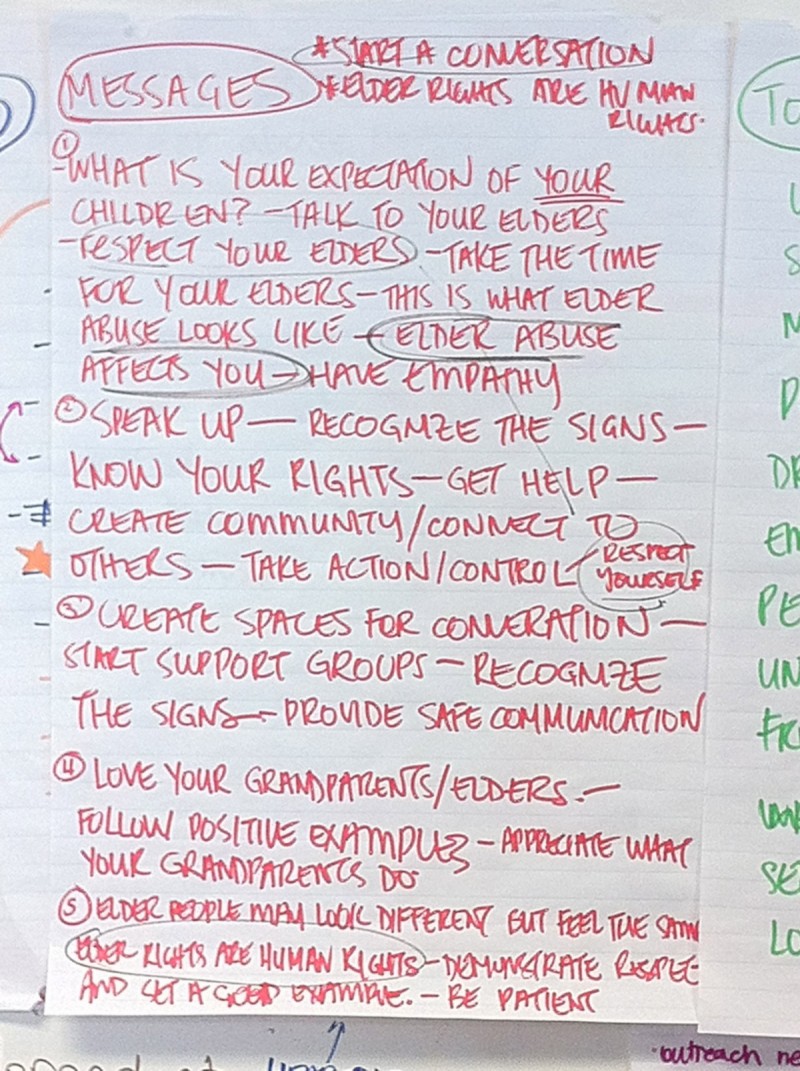 *START A CONVERSATION
MESSAGES *ELDER RIGHTS ARE HUMAN
RIGHTS.
① -WHAT IS YOUR EXPECTATION OF YOUR
CHILDREN? -TALK TO YOUR ELDERS
-RESPECT YOUR ELDERS -TAKE THE TIME
FOR YOUR ELDERS-THIS IS WHAT ELDER
ABUSE LOOKS LIKE - ELDER ABUSE
AFFECTS YOU - HAVE EMPATHY
② SPEAK UP - RECOGNIZE THE SIGNS -
KNOW YOUR RIGHTS - GET HELP -
CREATE COMMUNITY/CONNECT TO
OTHERS - TAKE ACTION/CONTROL RESPECT
YOURSELF
③ CREATE SPACES FOR CONVERATION -
START SUPPORT GROUPS - RECOGNIZE
THE SIGNS - PROVIDE SAFE COMMUNICATION
④ LOVE YOUR GRANDPARENTS/ELDERS. -
FOLLOW POSITIVE EXAMPLES - APPRECIATE WHAT
YOUR GRANDPARENTS DO
⑤ ELDER PEOPLE MAY LOOK DIFFERENT BUT FEEL THE SAM
ELDER RIGHTS ARE HUMAN RIGHTS - DEMONSTRATE RESPEC
AND SET A GOOD EXAMPLE. - BE PATIENT
TO
U
S
M
P
DR
EM
PE
UN
FR
SE
LO
outreach ne